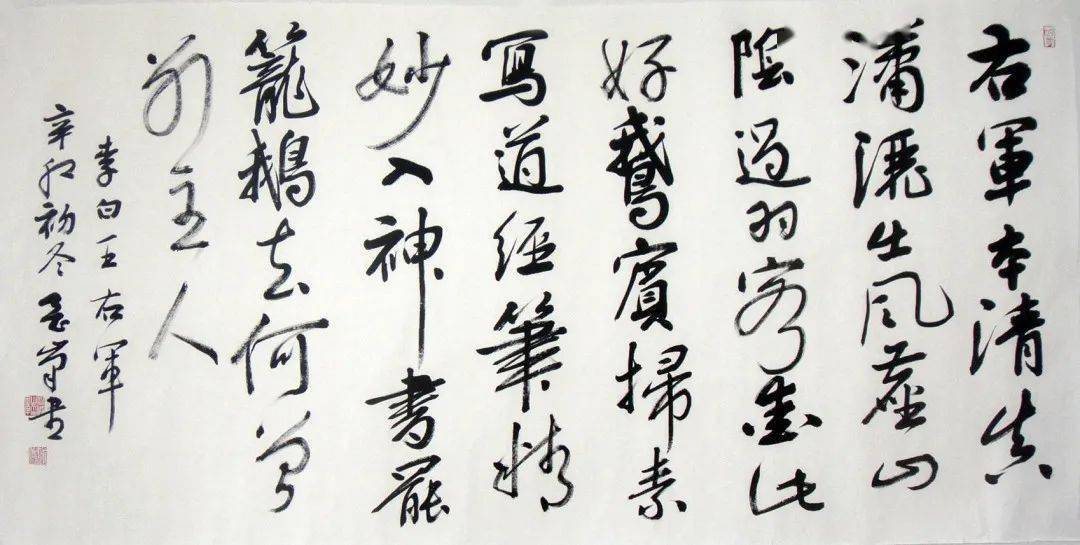 右軍本清真
瀟灑出風塵山
陰過羽客愛此
好鵝賓掃素
寫道經筆精
妙入神書罷
籠鵝去何曾
別主人
李白王右軍
辛卯初冬書